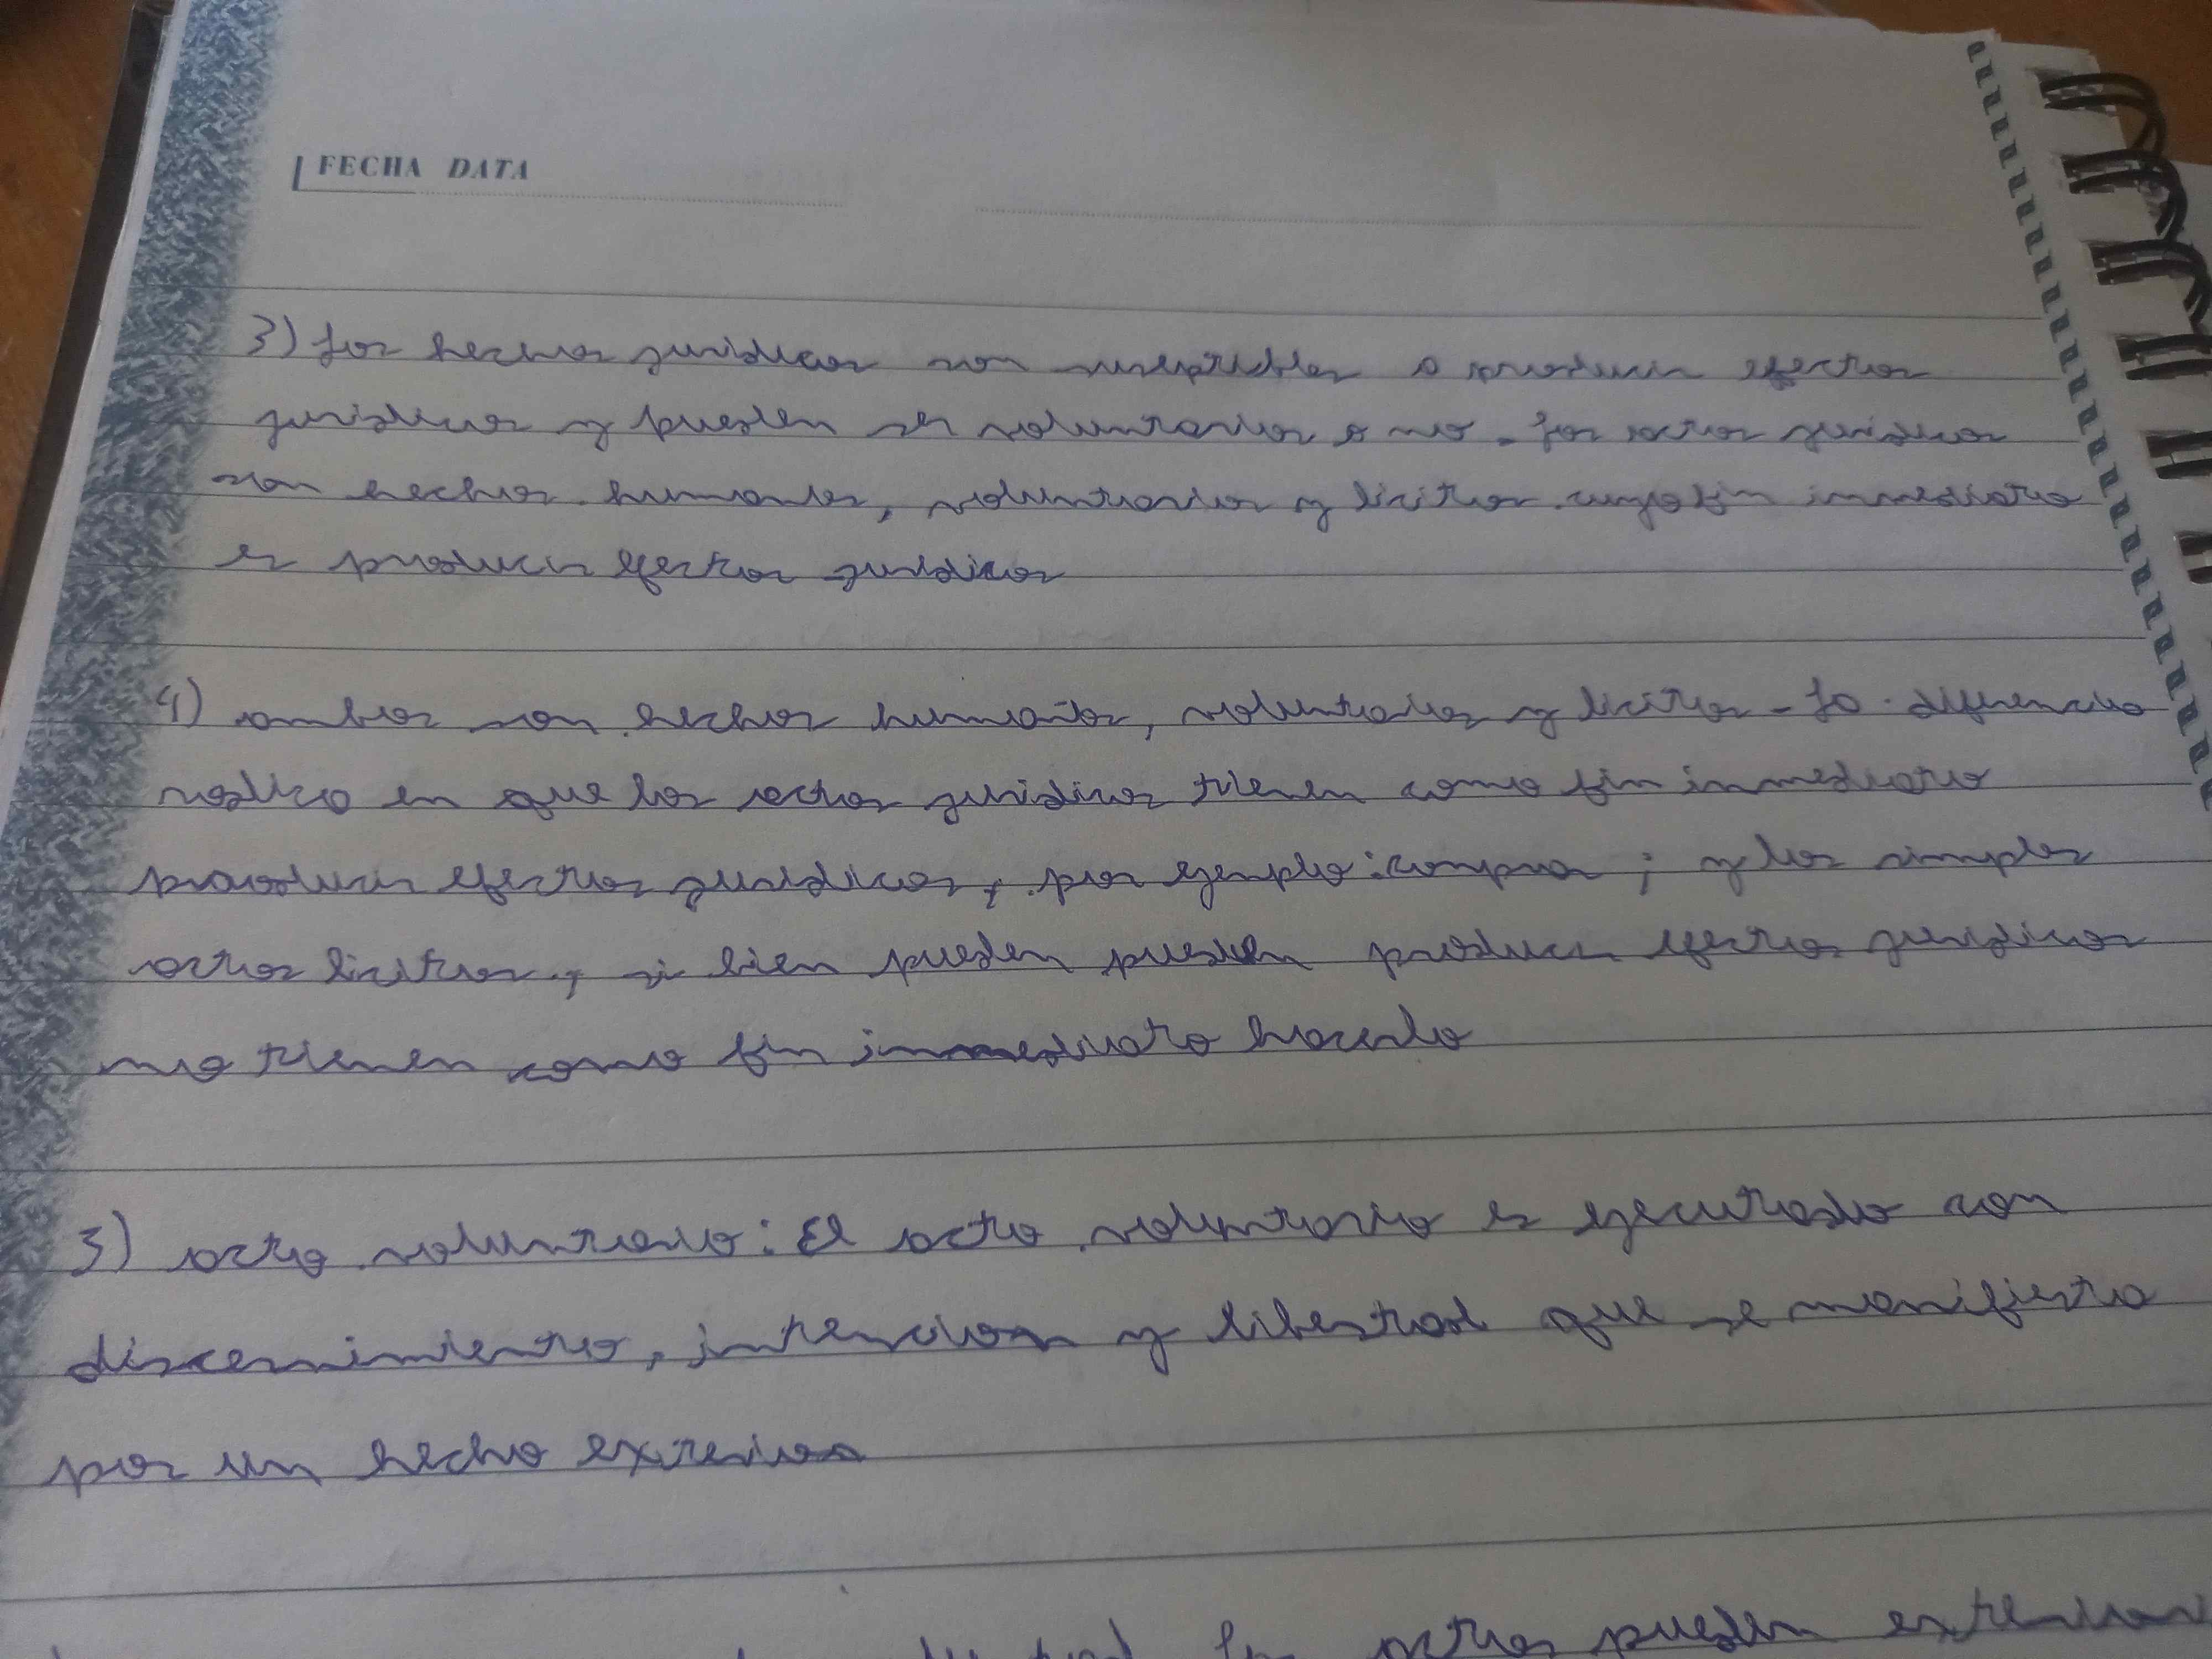 FECHA DATA
3) Los hechos juridicos son suseptibles a producir efectos
juridicos y pueden ser voluntarios o no. Los actos juridicos
son hechos humanos, voluntarios y licitos cuyo fin inmediato
es producir efectos juridicos
4) ambos son hechos humanos, voluntarios y licitos - La diferencia
radica en que los actos juridicos tienen como fin inmediato
producir efectos juridicos, por ejemplo: compra ; y los simples
actos licitos, si bien pueden pueden producir efectos juridicos
no tienen como fin inmediato hacerlo
5) acto voluntario: El acto voluntario es ejecutado con
discernimiento, intencion y libertad que se manifiesta
por un hecho exterior
Los actos pueden